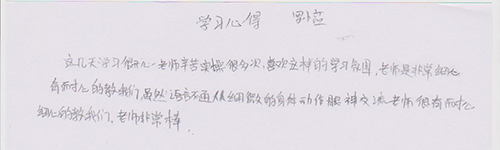 学习心得
这几天学习很开心,老师辛苦实操很多次,喜欢这样的学习氛围,老师是非常细心
有耐心的教我们,虽然语言不通,但细微的肢体动作眼神交流老师很有耐心
细心的教我们,老师非常棒.